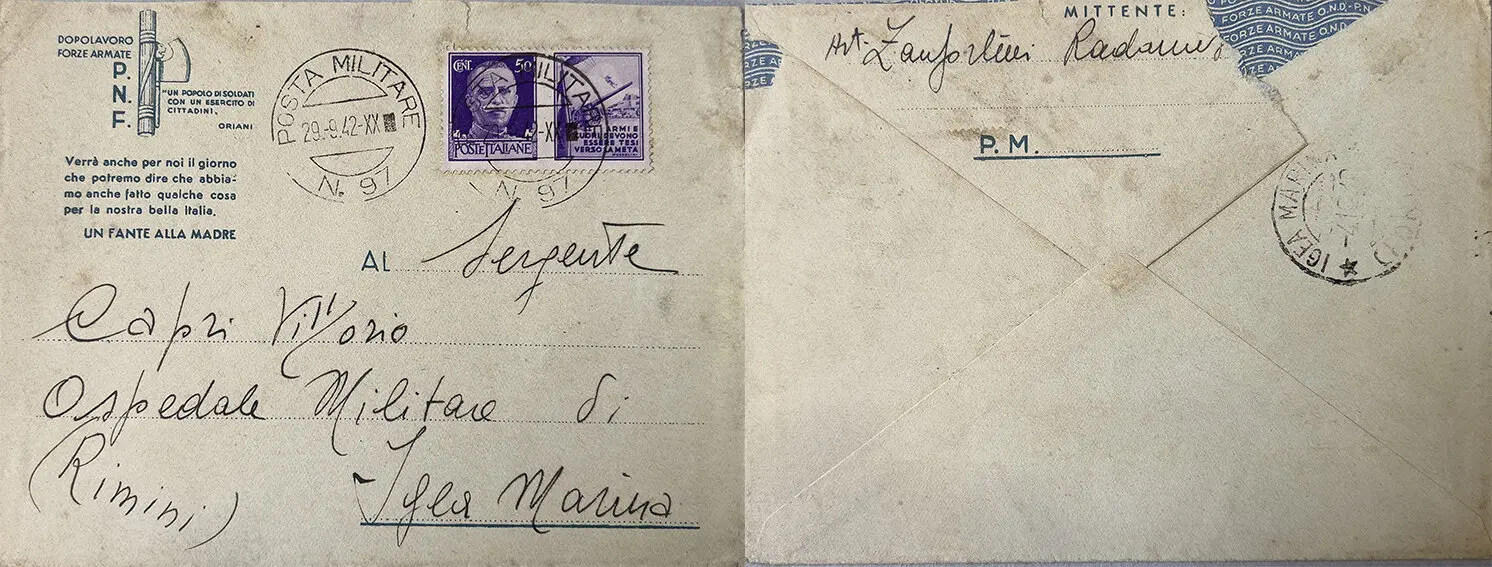 DOPOLAVORO
FORZE ARMATE
P.
N.
F.
"UN POPOLO DI SOLDATI
CON UN ESERCITO DI
CITTADINI.
ORIANI
Verrà anche per noi il giorno
che potremo dire che abbia-
mo anche fatto qualche cosa
per la nostra bella Italia.
UN FANTE ALLA MADRE
POSTA MILITARE
29-9.42-XX
N. 97
CENT. 50
POSTE ITALIANE
ARMI E
CUORI DEVONO
ESSERE TESI
VERSO LA META
N. 97
AL Sergente
Capri Vittorio
Ospedale Militare di
(Rimini) Igea Marina
MITTENTE:
FORZE ARMATE O.N.D.-P.N
FORZE ARMATE O.N.D
FORZE ARMATE
Art. Radames
P. M.
IGEA MARINA